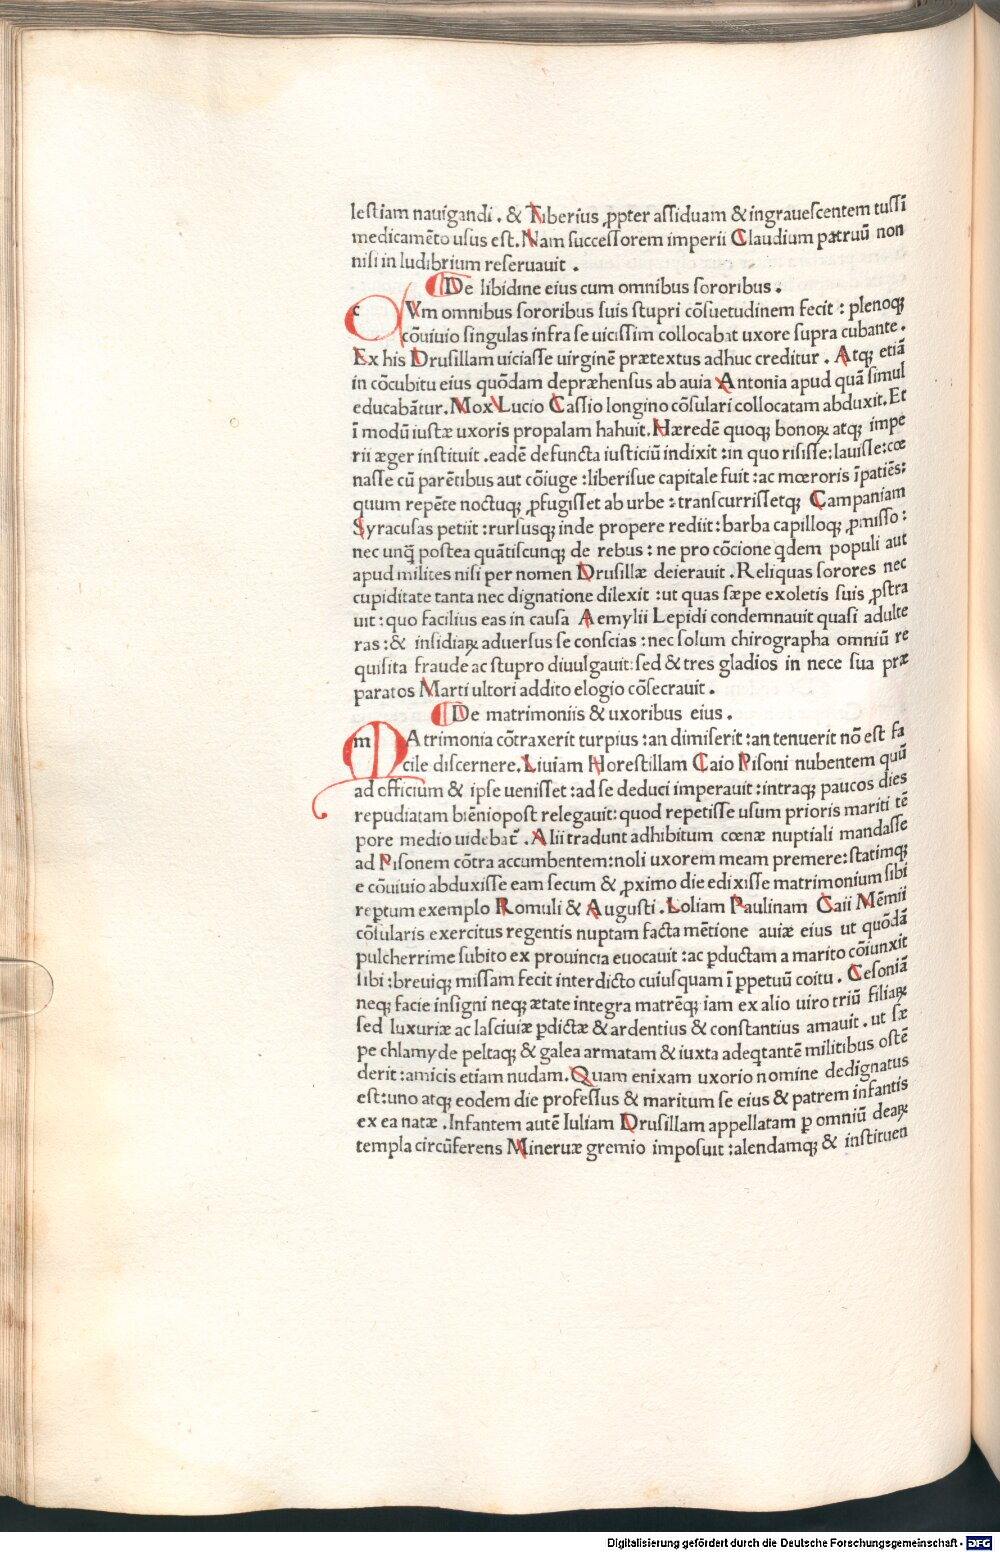 leſtiam nauigandi . & Tiberius ꝓpter aſſiduam & ingraueſcentem tuſſĩ
medicamẽto uſus eſt. Nam ſucceſſorem imperii Claudium patruũ non
niſi in ludibrium reſeruauit .
De libidine eius cum omnibus ſororibus .
c Vm omnibus ſororibus ſuis ſtupri cõſuetudinem fecit : plenoqꝫ
cõuiuio ſingulas infra ſe uiciſſim collocabat uxore ſupra cubante .
Ex his Druſillam uiciaſſe uirginẽ prætextus adhuc creditur . Atqꝫ etiã
in cõcubitu eius quõdam depræhenſus ab auia Antonia apud quã ſimul
educabãtur. Mox Lucio Caſſio longino cõſulari collocatam abduxit. Et
ĩ modũ iuſtæ uxoris propalam hahuit. Hæredẽ quoqꝫ bonoꝝ atqꝫ impe
rii æger inſtituit . eadẽ defuncta iuſticiũ indixit : in quo riſiſſe: lauiſſe: cœ
naſſe cũ parẽtibus aut cõiuge : liberiſue capitale fuit : ac mœroris ĩpatiẽs:
quum repẽte noctuqꝫ ꝓfugiſſet ab urbe : tranſcurriſſetqꝫ Campaniam
Syracuſas petiit : rurſusqꝫ inde propere rediit : barba capilloqꝫ ꝓmiſſo :
nec unq̃ poſtea quãtiſcunqꝫ de rebus : ne pro cõcione qdem populi aut
apud milites niſi per nomen Druſillæ deierauit . Reliquas ſorores nec
cupiditate tanta nec dignatione dilexit : ut quas ſæpe exoletis ſuis ꝓſtra
uit : quo facilius eas in cauſa Aemylii Lepidi condemnauit quaſi adulte
ras : & inſidiaꝝ aduerſus ſe conſcias : nec ſolum chirographa omniũ re
quiſita fraude ac ſtupro diuulgauit: ſed & tres gladios in nece ſua præ
paratos Marti ultori addito elogio cõſecrauit .
De matrimoniis & uxoribus eius .
m Atrimonia cõtraxerit turpius : an dimiſerit : an tenuerit nõ eſt fa
cile diſcernere. Liuiam Horeſtillam Caio Piſoni nubentem quũ
ad officium & ipſe ueniſſet : ad ſe deduci imperauit : intraqꝫ paucos dies
repudiatam biẽniopoſt relegauit: quod repetiſſe uſum prioris mariti tẽ
pore medio uidebat᷑ . Alii tradunt adhibitum cœnæ nuptiali mandaſſe
ad Piſonem cõtra accumbentem: noli uxorem meam premere: ſtatimqꝫ
e cõuiuio abduxiſſe eam ſecum & ꝓximo die edixiſſe matrimonium ſibi
reptum exemplo Romuli & Auguſti . Loliam Paulinam Caii Mẽmii
cõſularis exercitus regentis nuptam facta mẽtione auiæ eius ut quõdã
pulcherrime ſubito ex prouincia euocauit : ac ꝑductam a marito cõiunxit
ſibi : breuiqꝫ miſſam fecit interdicto cuiuſquam ĩ ꝑpetuũ coitu . Ceſoniã
neqꝫ facie inſigni neqꝫ ætate integra matrẽqꝫ iam ex alio uiro triũ filiaꝝ
ſed luxuriæ ac laſciuiæ ꝑdictæ & ardentius & conſtantius amauit . ut ſæ
pe chlamyde peltaqꝫ & galea armatam & iuxta adeqtantẽ militibus oſtẽ
derit : amicis etiam nudam. Quam enixam uxorio nomine dedignatus
eſt: uno atqꝫ eodem die profeſſus & maritum ſe eius & patrem infantis
ex ea natæ . Infantem autẽ Iuliam Druſillam appellatam ꝑ omniũ deaꝝ
templa circũferens Mineruæ gremio impoſuit : alendamqꝫ & inſtituen
Digitalisierung gefördert durch die Deutsche Forschungsgemeinschaft - DFG